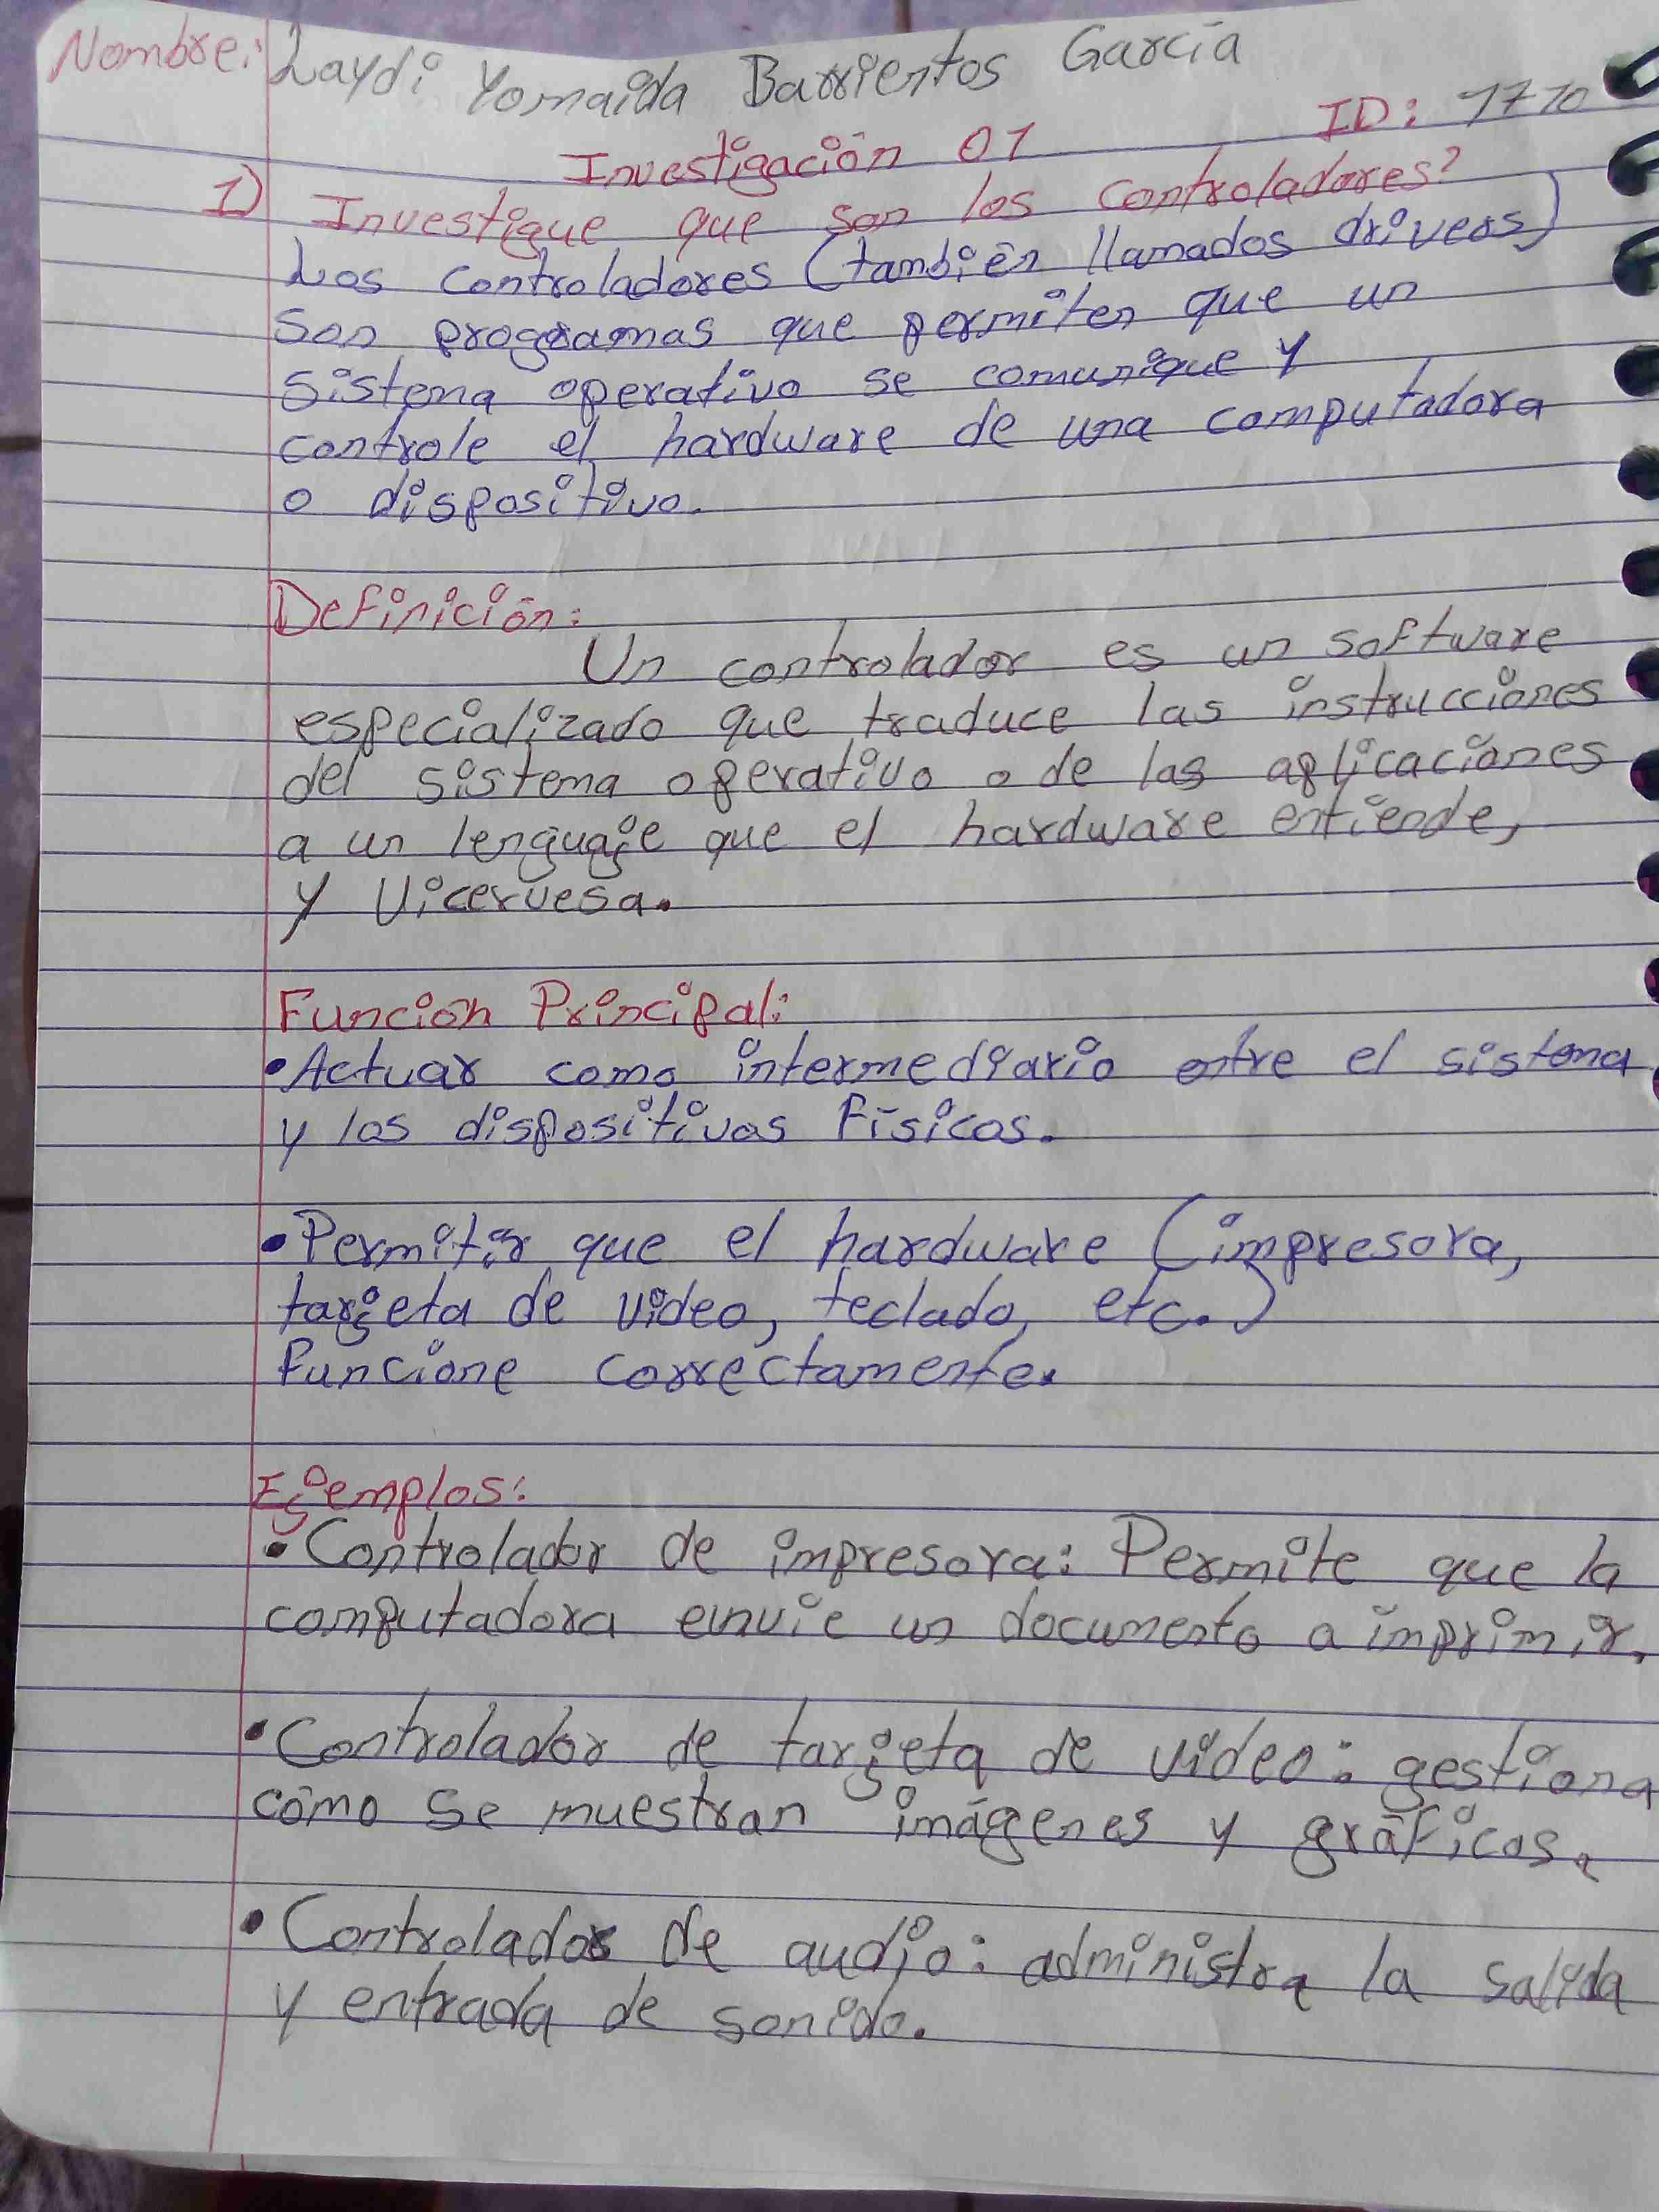 Nombre: Laydi Yomaida Barrientos García
ID: 1710
Investigación 01
1) Investigue que son los controladores?
Los controladores (también llamados drivers)
son programas que permiten que un
sistema operativo se comunique y
controle el hardware de una computadora
o dispositivo.
Definición:
Un controlador es un software
especializado que traduce las instrucciones
del sistema operativo o de las aplicaciones
a un lenguaje que el hardware entiende,
y Vicervesa.
Función Principal:
•Actuar como intermediario entre el sistema
y los dispositivos Físicos.
•Permitir que el hardware (impresora,
targeta de video, teclado, etc.)
Funcione correctamente.
Ejemplos:
•Controlador de impresora: Permite que la
computadora envie un documento a imprimir.
•Controlador de targeta de video: gestiona
cómo se muestran imágenes y gráficos.
•Controlador de audio: administra la salida
y entrada de sonido.